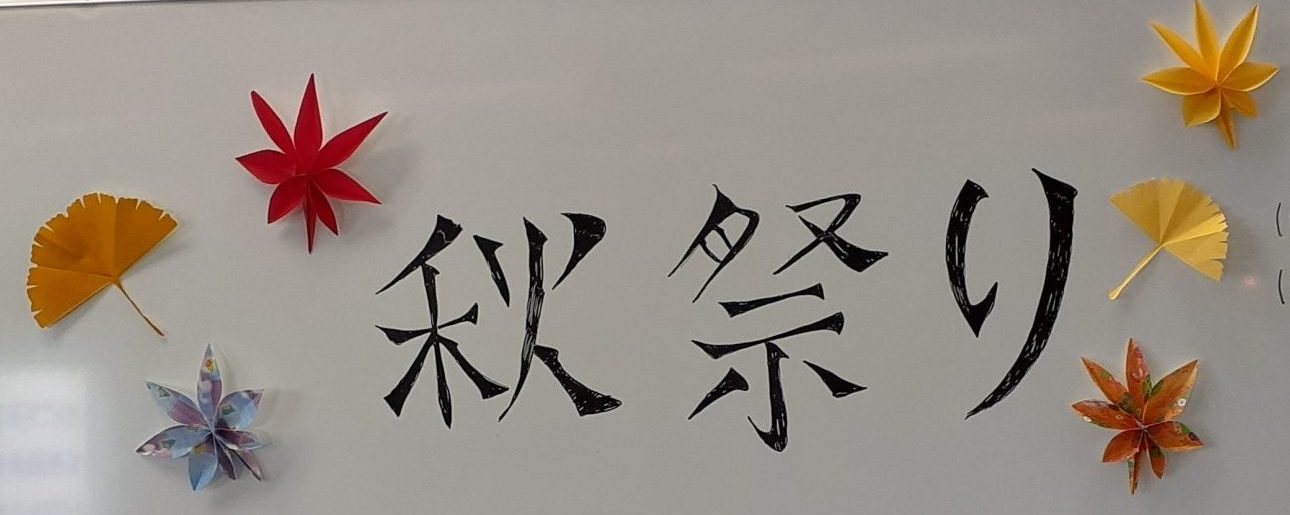 秋祭り